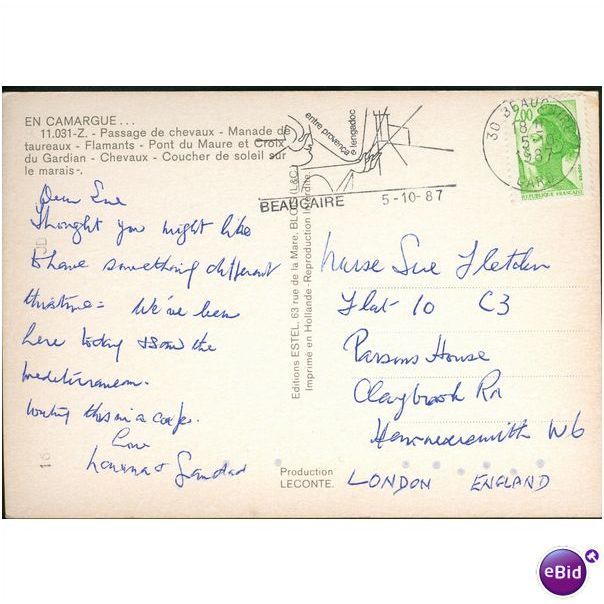 EN CAMARGUE...
11.031-Z. - Passage de chevaux - Manade de
taureaux - Flamants - Pont du Maure et Croix
du Gardian - Chevaux - Coucher de soleil sur
le marais -.
entre provence
e lengadoc
BEAUCAIRE 5-10-87
30 BEAUCAIRE
18 H
5-10
1987
GARD
2,00
REPUBLIQUE FRANÇAISE
Dear Sue
Thought you might like
to have something different
this time - We've been
here today & saw the
mediterranean.
Writing this in a cafe.
Love
& Grandad
Editions ESTEL, 63 rue de la Mare, BLOIS (L&C)
Imprimé en Hollande - Reproduction Interdite
Production
LECONTE.
Nurse Sue Fletcher
Flat 10 C3
Parsons House
Claybrook Rd
Hammersmith W6
LONDON ENGLAND
eBid